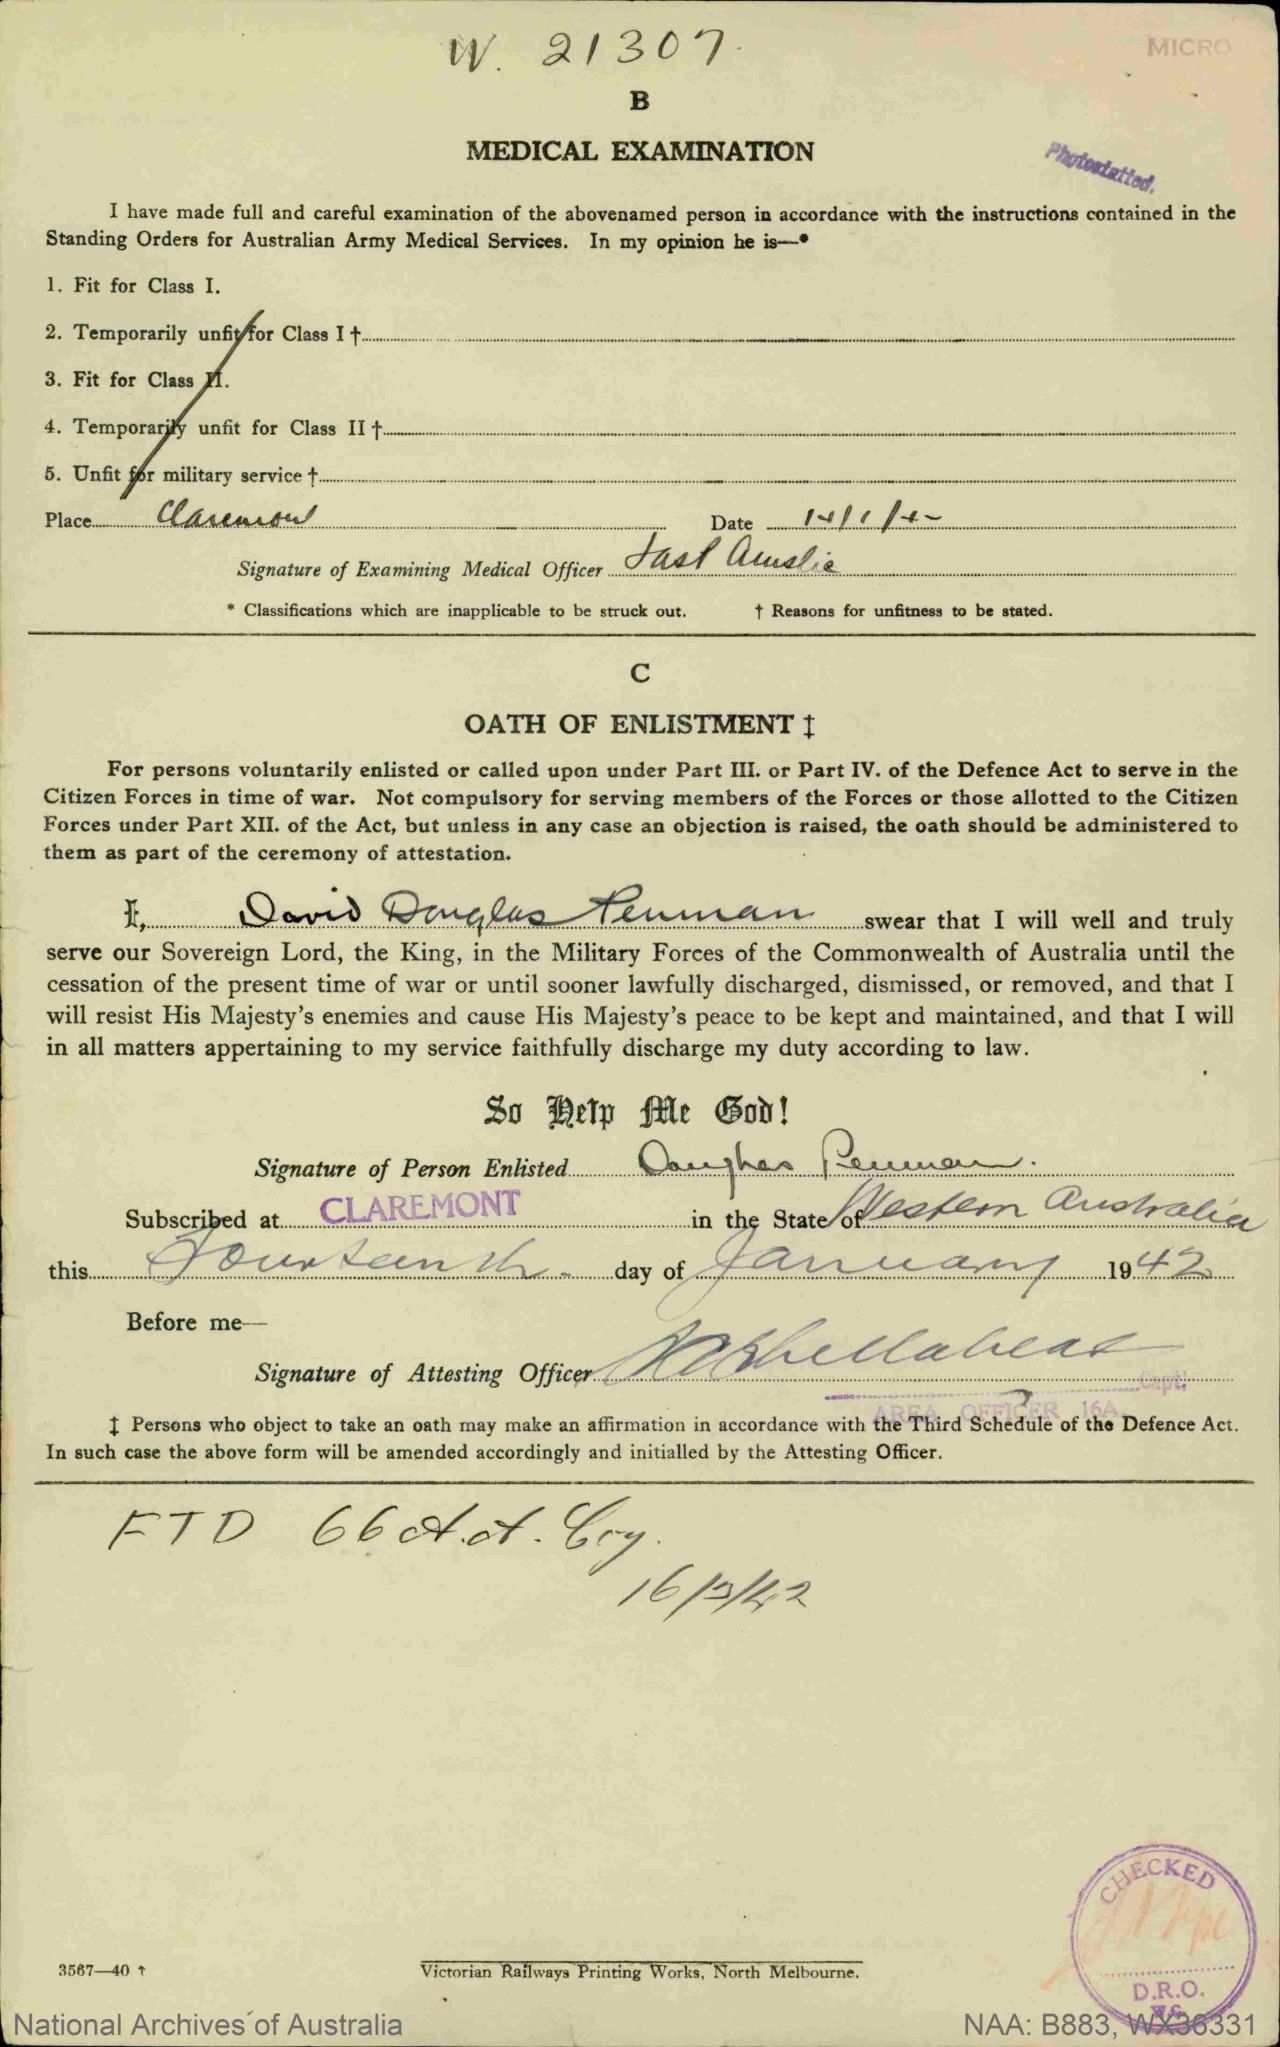 W. 21307
MICRO
B
MEDICAL EXAMINATION
Photostatted.
I have made full and careful examination of the abovenamed person in accordance with the instructions contained in the
Standing Orders for Australian Army Medical Services. In my opinion he is—*
1. Fit for Class I.
2. Temporarily unfit for Class I †
3. Fit for Class II.
4. Temporarily unfit for Class II †
5. Unfit for military service †
Place Claremont Date 14/1/42
Signature of Examining Medical Officer Ainslie
* Classifications which are inapplicable to be struck out. † Reasons for unfitness to be stated.
C
OATH OF ENLISTMENT ‡
For persons voluntarily enlisted or called upon under Part III. or Part IV. of the Defence Act to serve in the
Citizen Forces in time of war. Not compulsory for serving members of the Forces or those allotted to the Citizen
Forces under Part XII. of the Act, but unless in any case an objection is raised, the oath should be administered to
them as part of the ceremony of attestation.
I, David Douglas Penman swear that I will well and truly
serve our Sovereign Lord, the King, in the Military Forces of the Commonwealth of Australia until the
cessation of the present time of war or until sooner lawfully discharged, dismissed, or removed, and that I
will resist His Majesty's enemies and cause His Majesty's peace to be kept and maintained, and that I will
in all matters appertaining to my service faithfully discharge my duty according to law.
So Help Me God!
Signature of Person Enlisted Douglas Penman.
Subscribed at CLAREMONT in the State of Western Australia
this Fourteenth day of January 1942
Before me—
Signature of Attesting Officer
Capt.
AREA OFFICER 16A.
‡ Persons who object to take an oath may make an affirmation in accordance with the Third Schedule of the Defence Act.
In such case the above form will be amended accordingly and initialled by the Attesting Officer.
FTD 66 A.A. Coy.
16/3/42
CHECKED
D.R.O.
3567—40 †
Victorian Railways Printing Works, North Melbourne.
National Archives of Australia
NAA: B883, WX36331